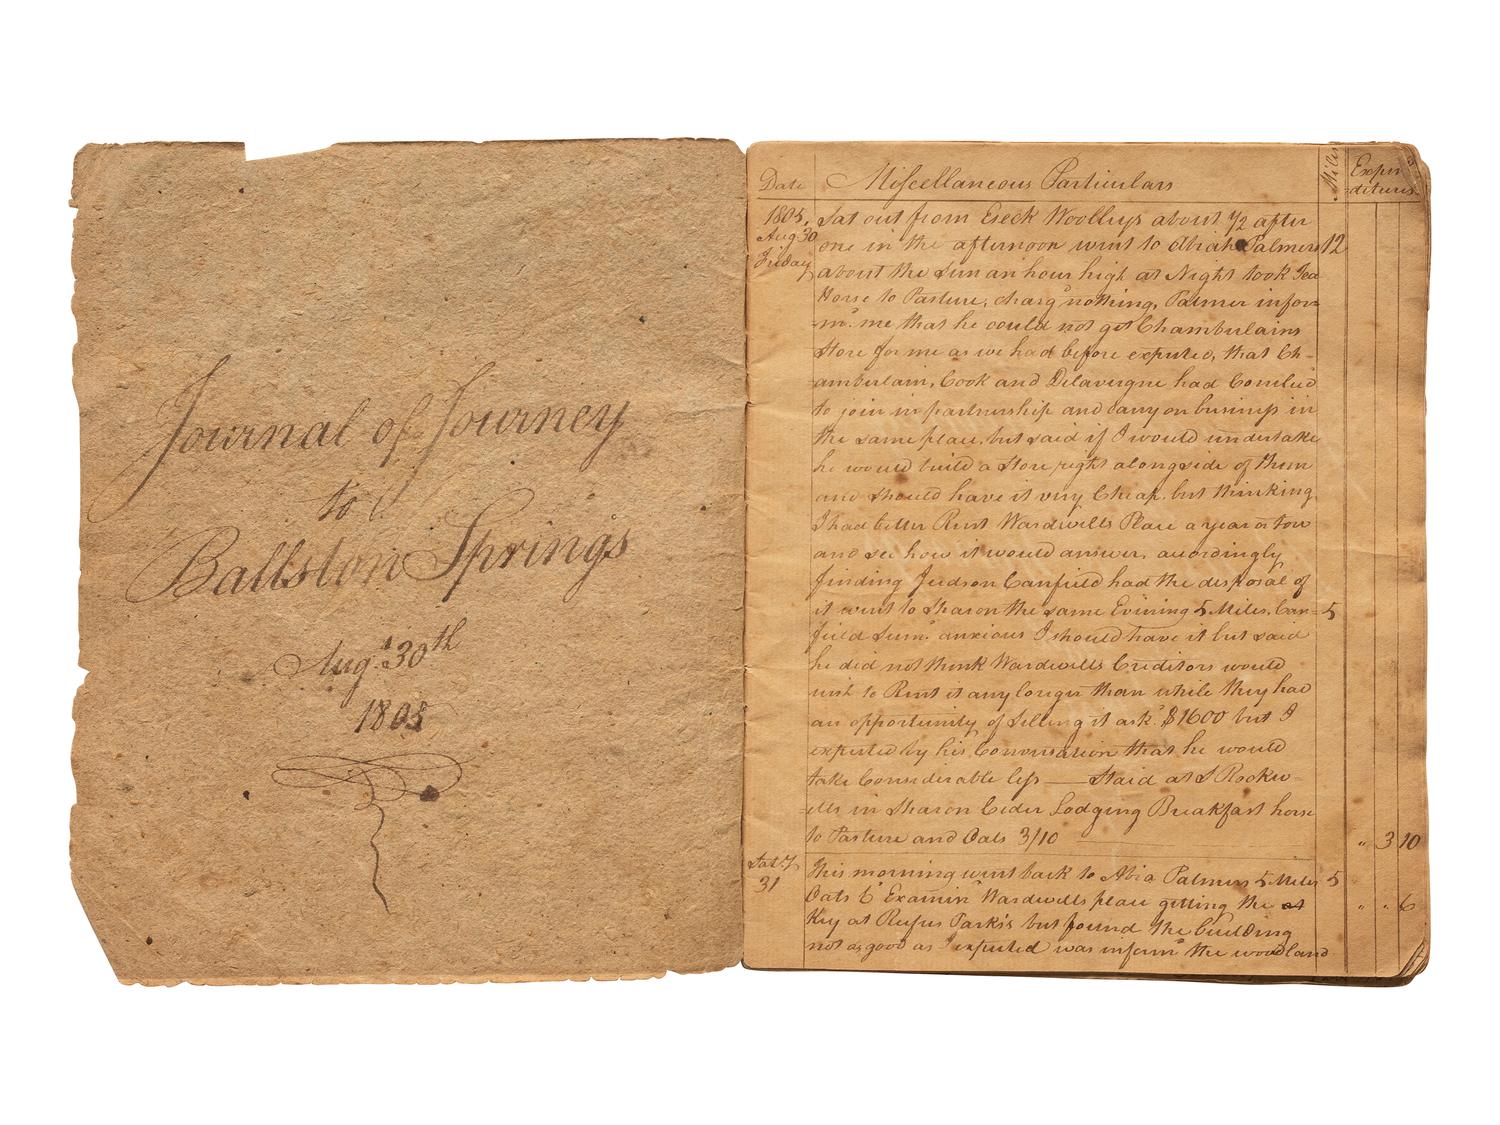 Journal of Journey
to
Ballston Springs
Aug.t 30th
1805
Date
Miscellaneous Particulars
Miles
Expen
-ditures
1805. Sat out from Eseck Woolleys about 1/2 after
Aug 30 one in the afternoon went to Abiah Palmers 12
Friday about the Sun an hour high at Night took Tea
Horse to Pasture, charg'd nothing, Palmer infor-
-m'd me that he could not get Chamberlains
Store for me as we had before expected, that Ch-
amberlain, Cook and Delavergne had Concluded
to join in partnership and carry on business in
the same place, but said if I would undertake
he would build a Store right alongside of them
and should have it very Cheap, but thinking
I had better Rent Wardwells Place a year or tow
and see how it would answer, accordingly
finding Judson Canfield had the disposal of
it went to Sharon the same Evining 5 Miles, Can- 5
field Seem'd anxious I should have it but said
he did not think Wardwells Creditors would
wish to Rent it any longer than while they had
an opportunity of Selling it ask'd $1600 but I
expected by his Conversation that he would
take Considerable less — Staid at S Rockw-
ells in Sharon Cider Lodging Breakfast horse
to Pasture and Oats 3/10 " 3 10
Sat.y This morning went back to Abia Palmers 5 Miles 5
31 Oats 6d Examin'd Wardwells place getting the " " 6
Key at Rufus Park's but found the building
not as good as I expected was inform'd the woodland